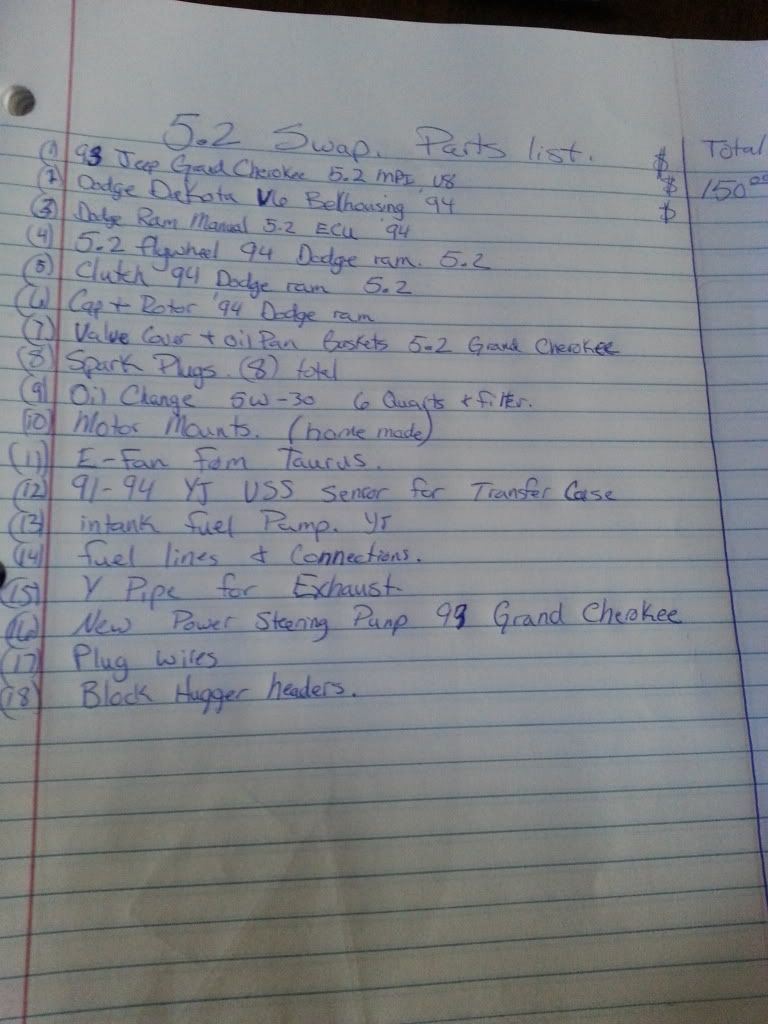 5.2 Swap. Parts list. Total
(1) 93 Jeep Grand Cherokee 5.2 MPI V8 $
(2) Dodge Dakota V6 Bellhousing '94 $ 150.00
(3) Dodge Ram Manual 5.2 ECU '94 $
(4) 5.2 flywheel 94 Dodge ram. 5.2
(5) Clutch '94 Dodge ram 5.2
(6) Cap + Rotor '94 Dodge ram
(7) Valve Cover + Oil Pan Gaskets 5.2 Grand Cherokee
(8) Spark Plugs. (8) total
(9) Oil Change 5W-30 6 Quarts + filter.
(10) Motor Mounts. (home made)
(11) E-Fan from Taurus.
(12) 91-94 YJ VSS Sensor for Transfer Case
(13) intank fuel Pump. YJ
(14) fuel lines & Connections.
(15) Y Pipe for Exhaust
(16) New Power Steering Pump 93 Grand Cherokee
(17) Plug wires
(18) Block Hugger headers.